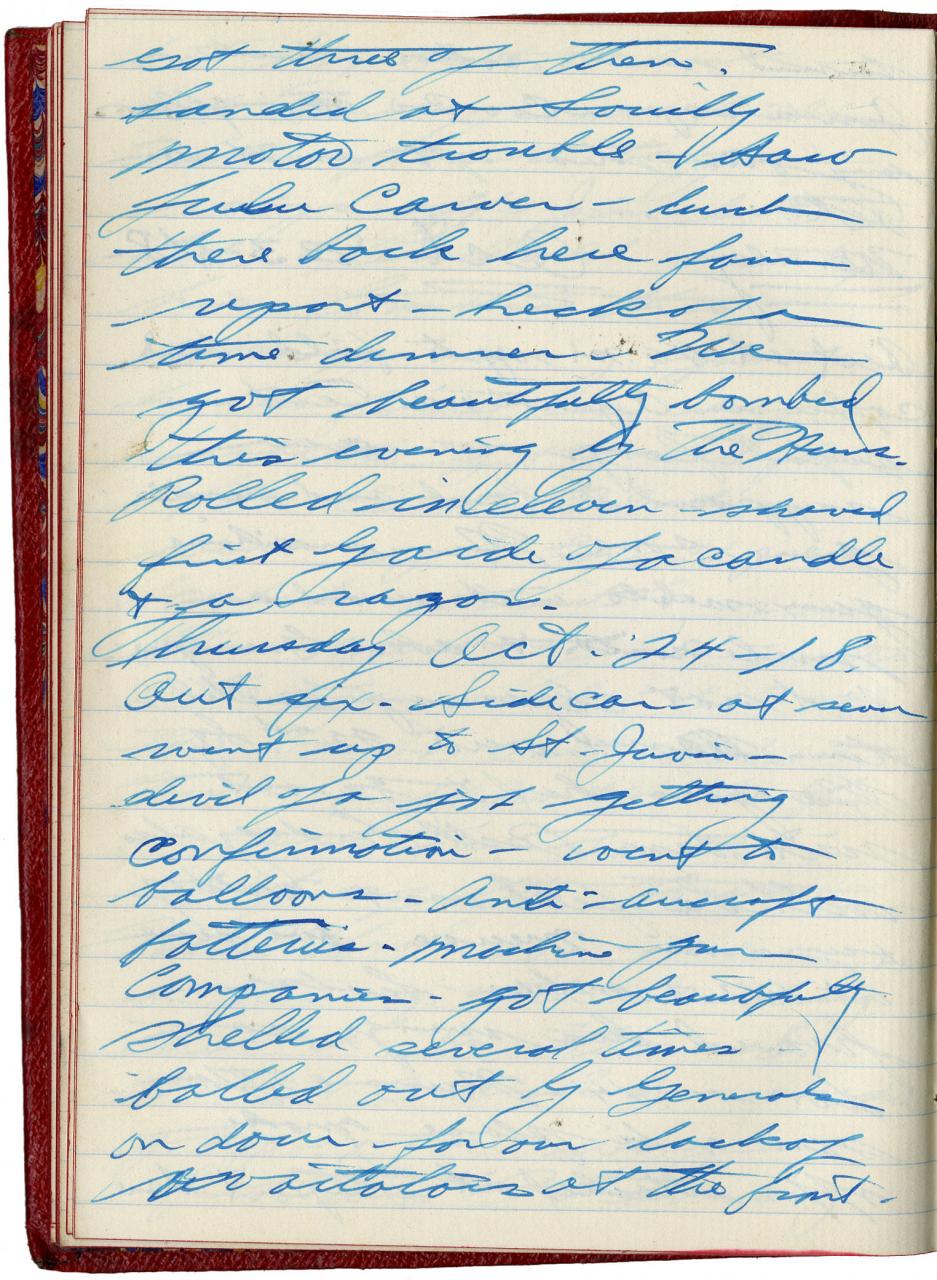 got three of them.
Landed at Souilly
motor trouble - saw
Carver - lunch
there back here four
report - heck of a
time dinner - We
got beautifully bombed
this evening by The Huns.
Rolled in eleven - shaved
first by aide of a candle
& a razor.
Thursday Oct. 24-18.
Out six - Sidecar at seven
went up to St. Juvin -
devil of a job getting
confirmation - went to
balloons - Anti-aircraft
batteries - machine gun
Companies - got beautifully
shelled several times -
balled out by Generals
on down for our lack of
at the front -